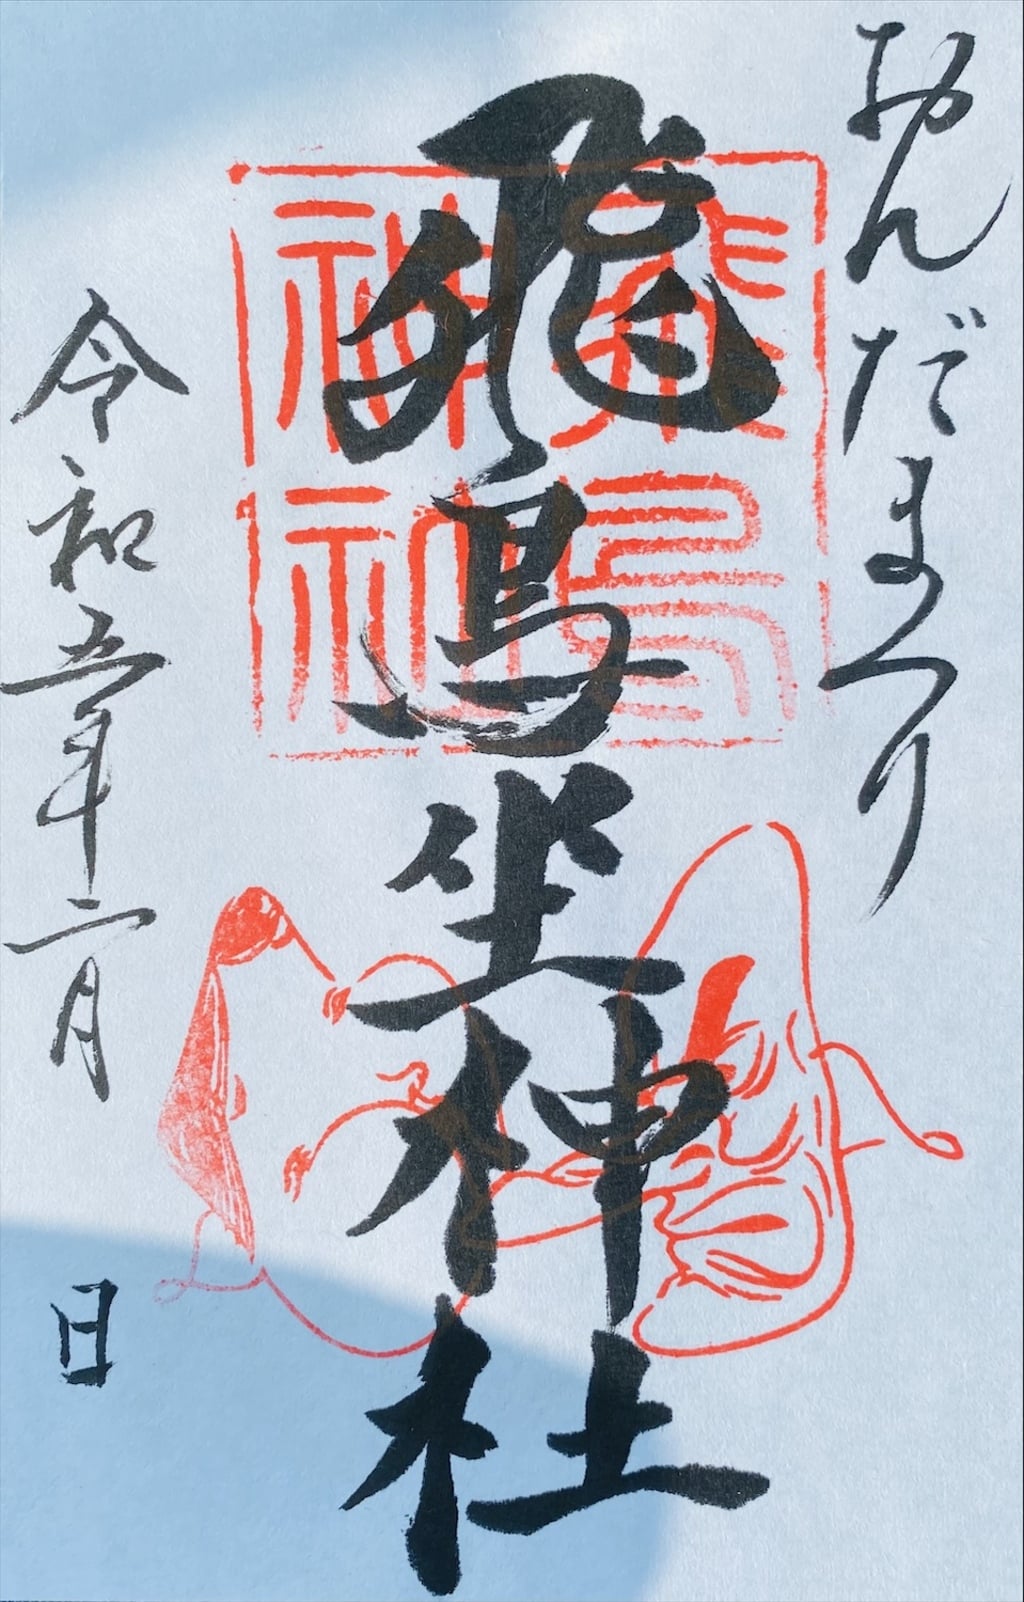 おんだまつり
飛鳥坐神社
飛鳥
神社
令和五年二月 日